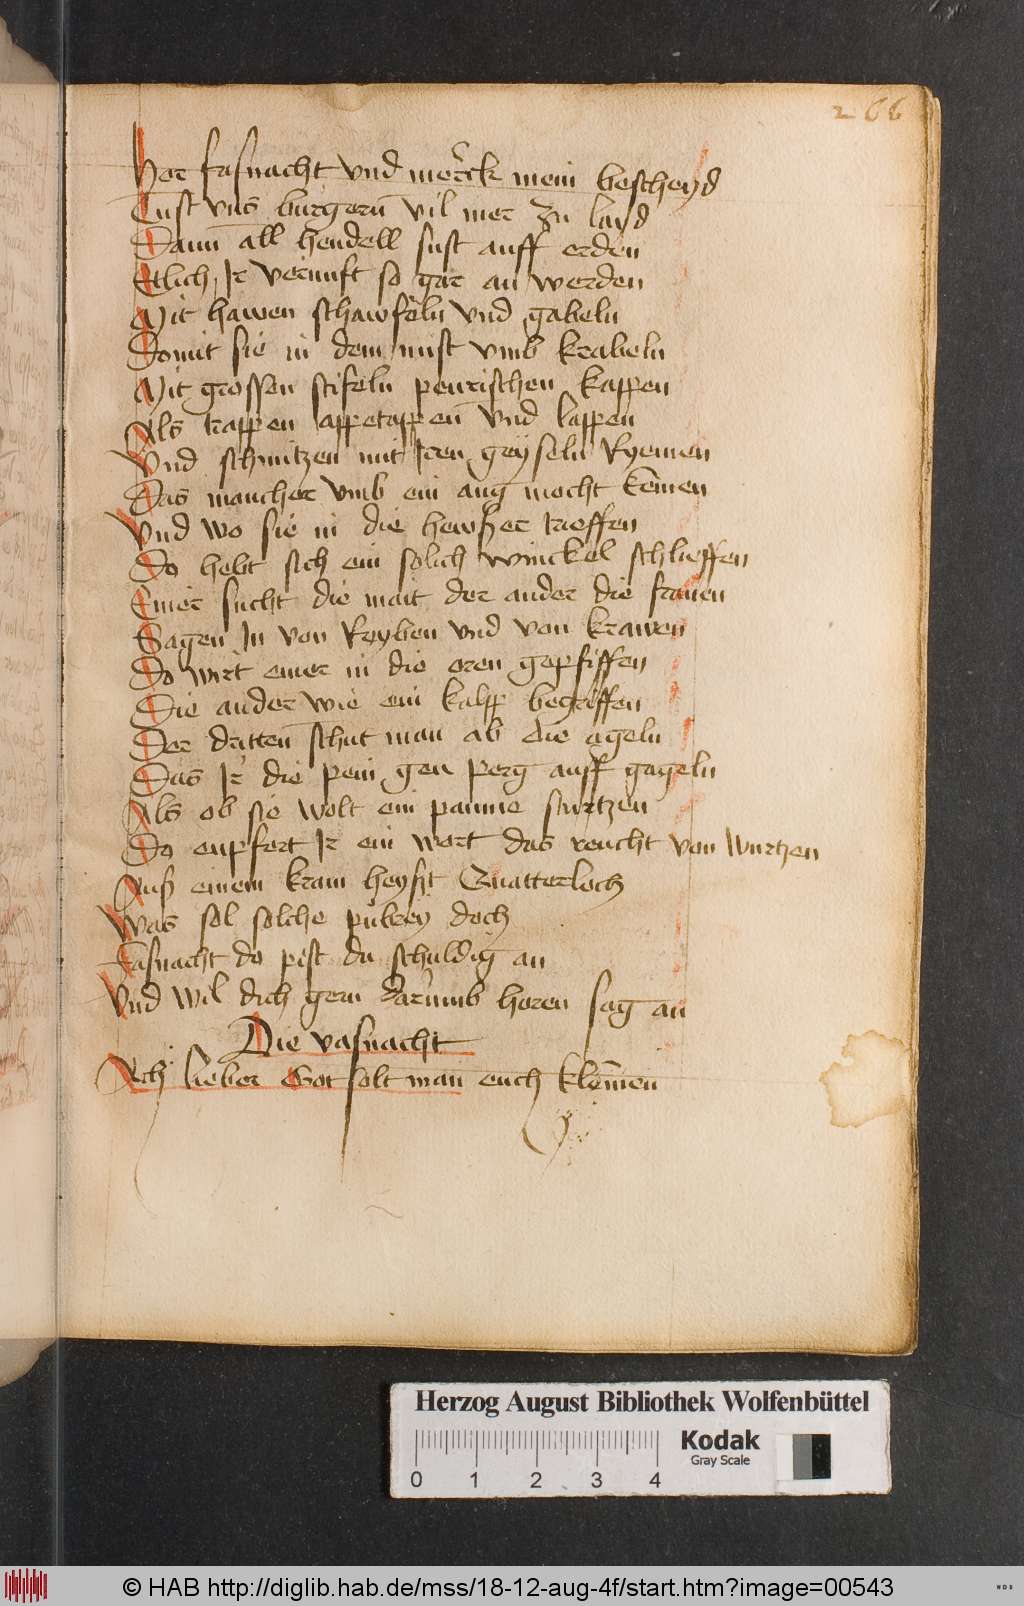 266
Hor fasnacht vnd merck mein bescheyd
Tust vns burgern vil mer zu layd
Dann all hendell sust auff erden
Etlich Ir vernunft so gar an werden
Mit hawen schawfeln vnd gabeln
Domit sie in dem mist vmb krabeln
Mit grossen stifeln pewrischen kappen
Als trappen appetappen vnd lappen
Vnd schmitzen mit Iren geyseln Ryemen
Das mancher vmb ein aug mocht kemen
Vnd wo sie in die hewßer trieffen
Do hebt sich ein solich winckel schlieffen
Einer sucht die mait der ander die frauen
Sagen In von Reyben vnd von krawen
Do wirt einer in die oren gepfiffen
Die ander wie ein kalp begriffen
Der dritten schut man ab die ageln
Das Ir die pein gen perg auff gageln
Als ob sie wolt ein pawme sturtzen
Do enpfert Ir ein wort das reucht von wurtzen
Auß einem kram heyßt Quatterloch
Was sol solche pubrey doch
Fasnacht do pist du schuldig an
Vnd wil dich gern darumb horen sag an
Die vasnacht
Ach lieber Got solt man euch klemen
Herzog August Bibliothek Wolfenbüttel
Kodak
Gray Scale
0 1 2 3 4
© HAB http://diglib.hab.de/mss/18-12-aug-4f/start.htm?image=00543